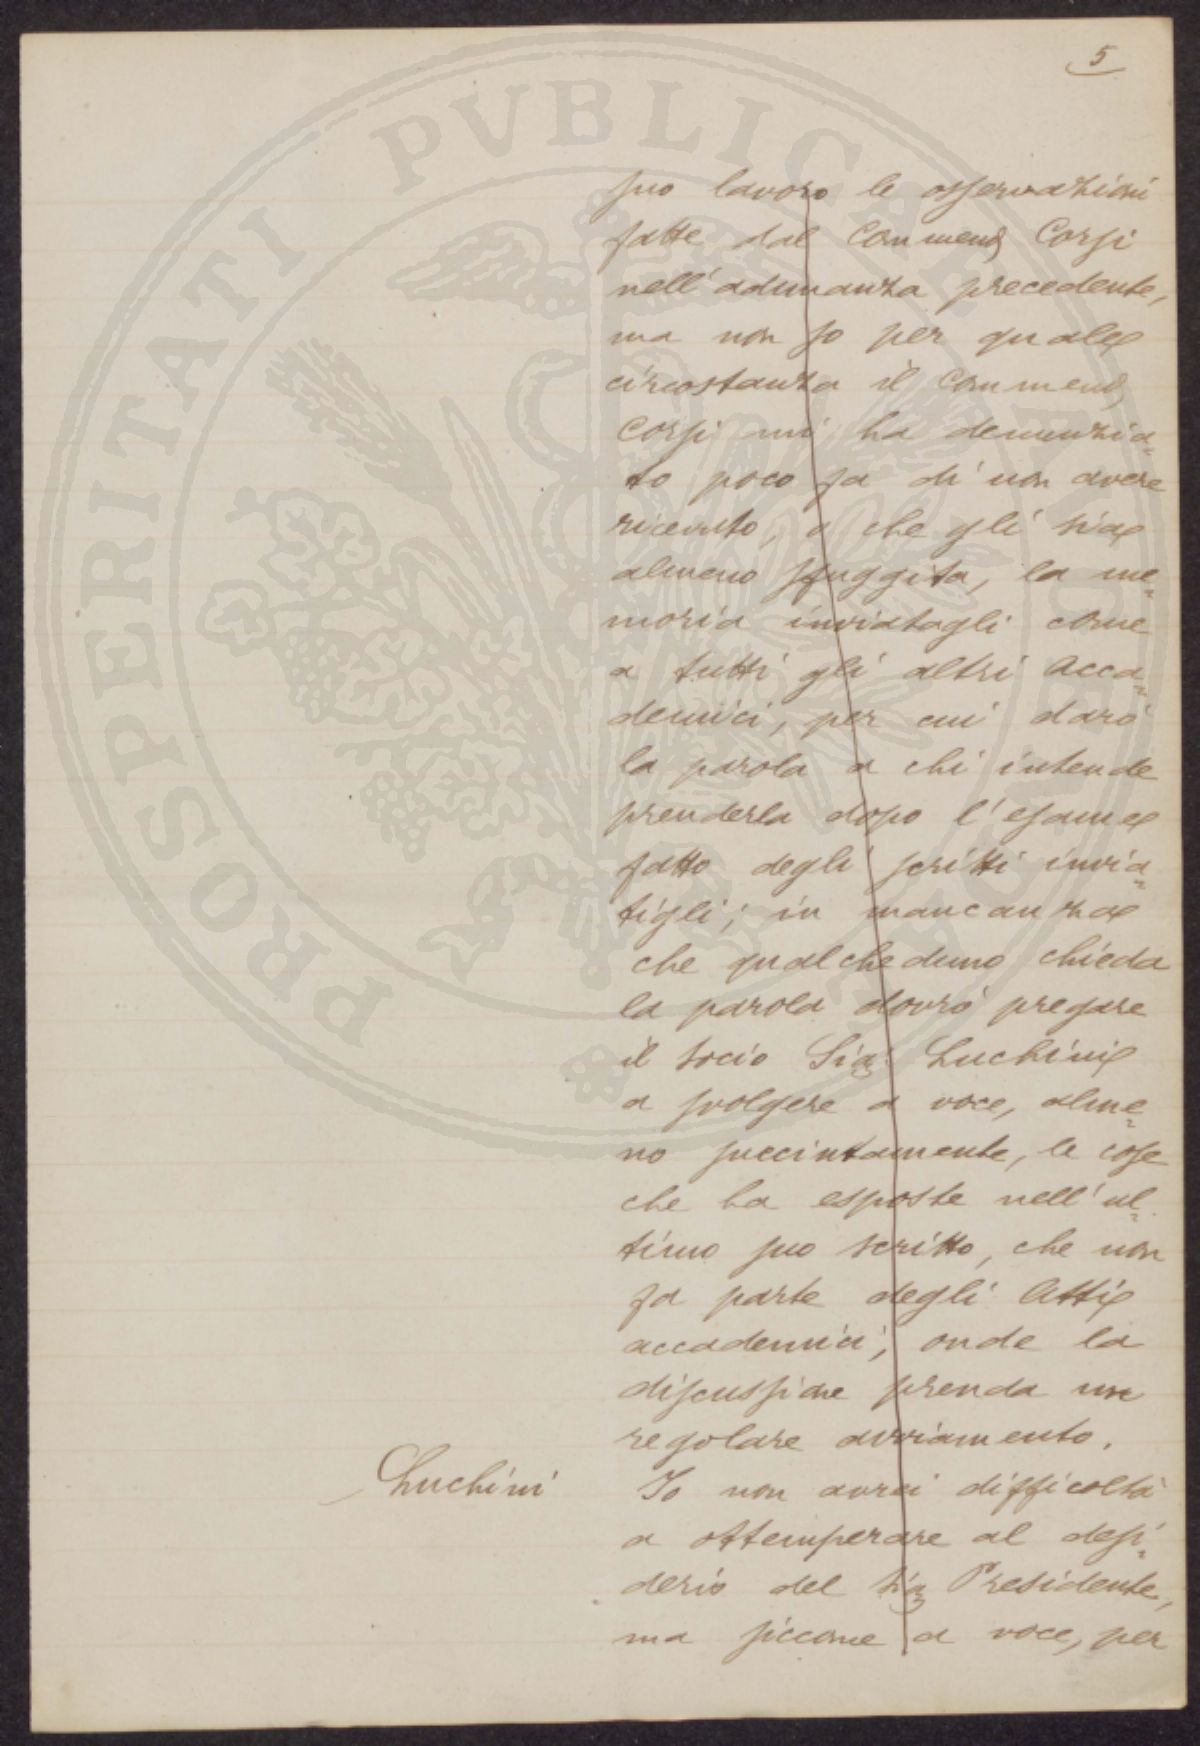 5
suo lavoro le osservazioni
fatte dal Commend Corsi
nell'adunanza precedente,
ma non so per quale
circostanza il Commend
Corsi mi ha denunzia=
to poco fa di non avere
ricevuto, o che gli sia
almeno sfuggita, la me=
moria inviatagli come
a tutti gli altri Acca=
demici, per cui darò
la parola a chi intende
prenderla dopo l'esame
fatto degli scritti invia=
tigli; in mancanza
che qualcheduno chieda
la parola dovrò pregare
il socio Sig. Luchini
a svolgere a voce, alme=
no succintamente, le cose
che ha esposte nell'ul=
timo suo scritto, che non
fa parte degli Atti
accademici, onde la
discussione prenda un
regolare avviamento.
Luchini Io non avrei difficoltà
a ottemperare al desi=
derio del Sig Presidente,
ma siccome a voce, per
PROSPERITATI PVBLICAE